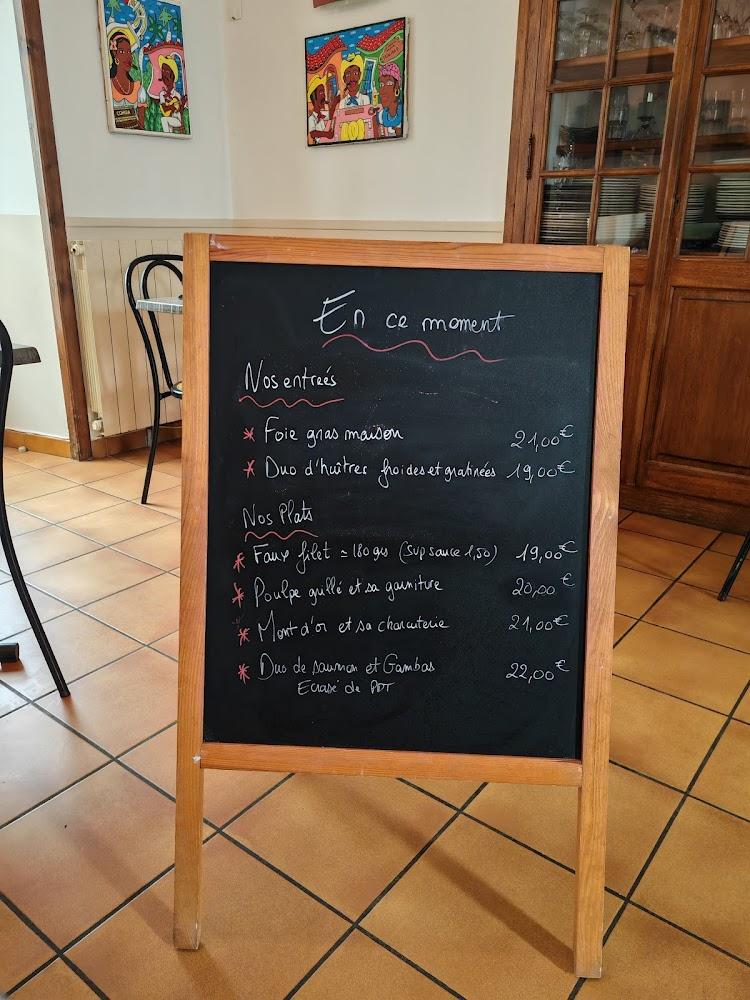 En ce moment
Nos entrées
* Foie gras maison 21,00€
* Duo d'huîtres froides et gratinées 19,00€
Nos Plats
* Faux filet ≃ 180 grs (Sup sauce 1,50) 19,00€
* Poulpe grillé et sa garniture 20,00 €
* Mont d'or et sa charcuterie 21,00€
* Duo de saumon et Gambas 22,00€
Ecrasé de PDT